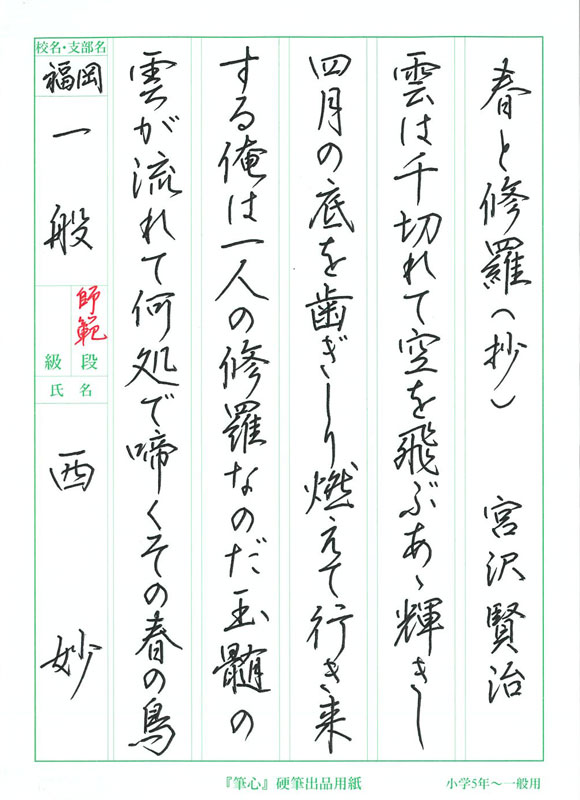 春と修羅(抄) 宮沢賢治
雲は千切れて空を飛ぶあゝ輝きし
四月の底を歯ぎしり燃えて行き来
する俺は一人の修羅なのだ玉髄の
雲が流れて何処で啼くその春の鳥
校名・支部名
福岡
一般
師範
級 段
氏名
西 妙
『筆心』硬筆出品用紙
小学5年～一般用